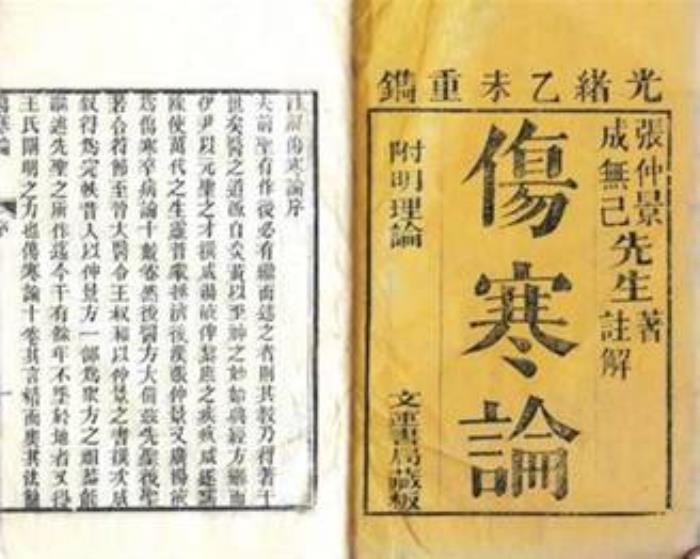 光緒乙未重鐫
張仲景先生著
成無己先生註解
傷寒論
附明理論
文運書局藏板
註解傷寒論序
夫前聖有作後必有繼而述之者則其教乃得著于
世矣醫之道源自炎黃以至神之妙始興經方繼而
伊尹以元聖之才撰成湯液俾黎庶之疾疢咸遂蠲
除使萬代之生靈普蒙拯濟後漢張仲景又廣湯液
爲傷寒卒病論十數卷然後醫方大備茲先聖後聖
若合符節至晉太醫令王叔和以仲景之書撰次成
敘得爲完帙昔人以仲景方一部爲衆方之祖蓋能
繼述先聖之所作迄今千有餘年不墜於地者又得
王氏闡明之力也傷寒論十卷其言精而奧其法簡
傷寒論 序 一